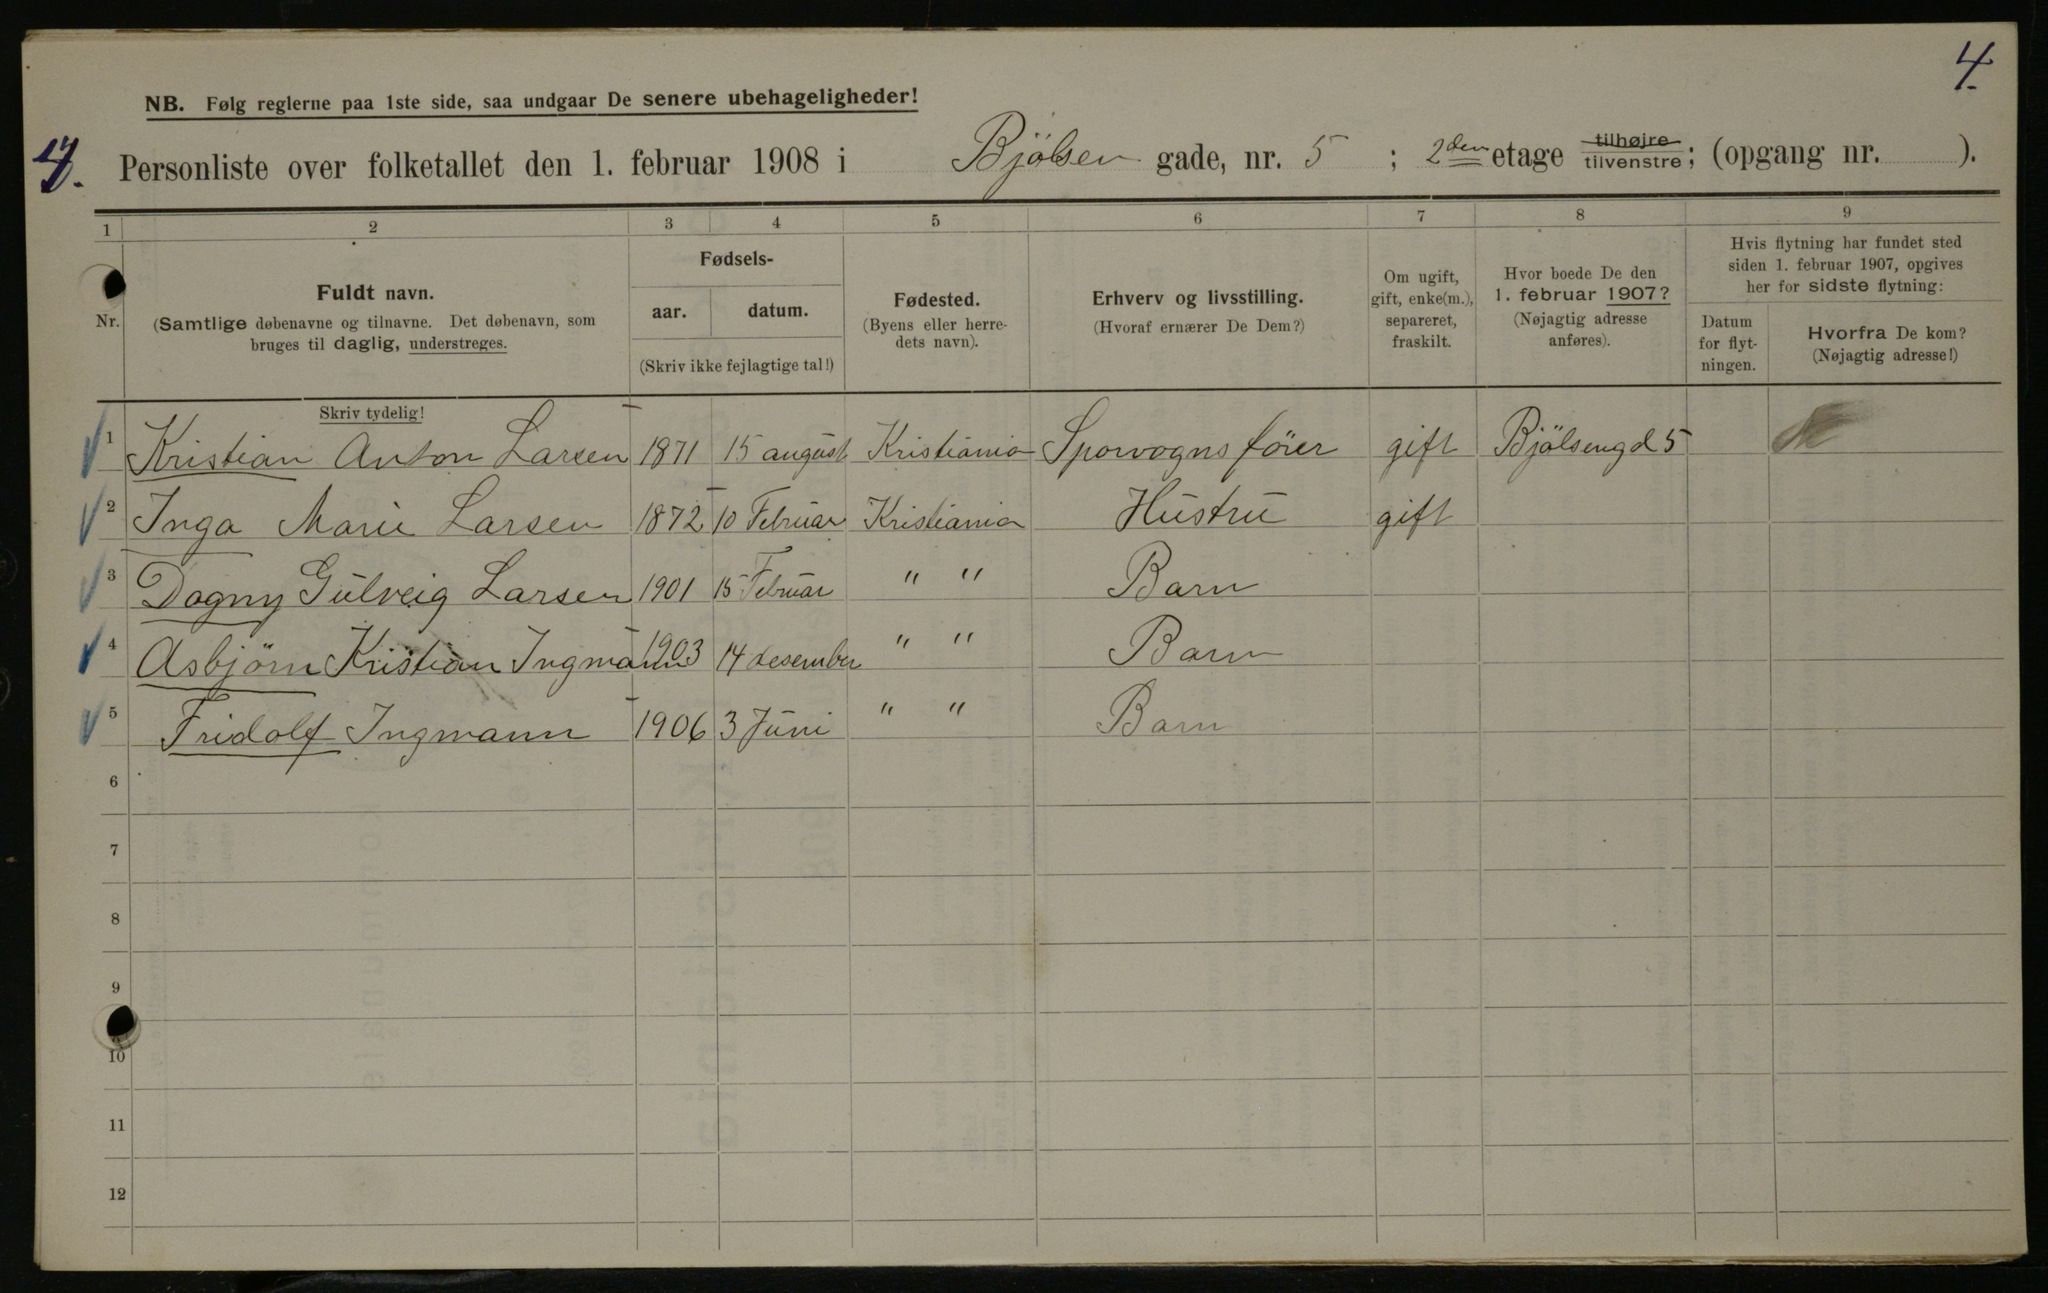 4.
NB. Følg reglerne paa 1ste side, saa undgaar De senere ubehageligheder!
Personliste over folketallet den 1. februar 1908 i Bjölsen gade, nr. 5 ; 2den etage tilhøjre tilvenstre; (opgang nr. ).
1 2 3 4 5 6 7 8 9
Nr.
Fuldt navn.
(Samtlige døbenavne og tilnavne. Det døbenavn, som
bruges til daglig, understreges.
Fødsels-
aar. datum.
(Skriv ikke fejlagtige tal!)
Fødested.
(Byens eller herre-
dets navn).
Erhverv og livsstilling.
(Hvoraf ernærer De Dem?)
Om ugift,
gift, enke(m.),
separeret,
fraskilt.
Hvor boede De den
1. februar 1907?
(Nøjagtig adresse
anføres).
Hvis flytning har fundet sted
siden 1. februar 1907, opgives
her for sidste flytning:
Datum
for flyt-
ningen.
Hvorfra De kom?
(Nøjagtig adresse!)
Skriv tydelig!
1 Kristian Anton Larsen 1871 15 august Kristiania Sporvognsförer gift Bjölsengd 5
2 Inga Marie Larsen 1872 10 Februar Kristiania Hustru gift
3 Dagny Gulveig Larsen 1901 15 Februar " " Barn
4 Asbjörn Kristian Ingmann 1903 14 desember " " Barn
5 Fridolf Ingmann 1906 3 Juni " " Barn
6
7
8
9
10
11
12